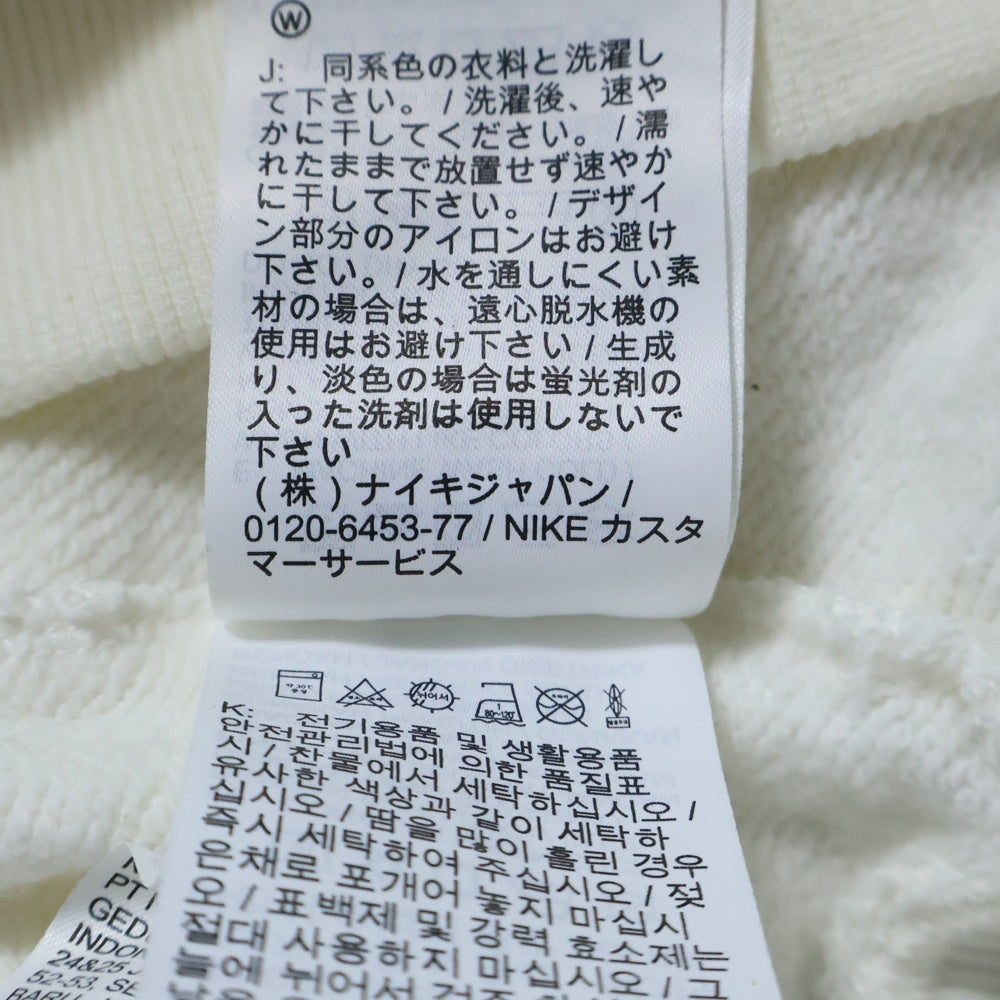 W
J: 同系色の衣料と洗濯し
て下さい。 / 洗濯後、速や
かに干してください。 / 濡
れたままで放置せず速やか
に干して下さい。 / デザイ
ン部分のアイロンはお避け
下さい。/ 水を通しにくい素
材の場合は、遠心脱水機の
使用はお避け下さい / 生成
り、淡色の場合は蛍光剤の
入った洗剤は使用しないで
下さい
(株) ナイキジャパン /
0120-6453-77 / NIKE カスタ
マーサービス
약 30℃ 중성 쉬어서 80~120℃
K: 전기용품 및 생활용품
안전관리법에 의한 품질표
시 / 찬물에서 세탁하십시오 /
유사한 색상과 같이 세탁하
십시오 / 땀을 많이 흘린 경우
즉시 세탁하여 주십시오 / 젖
은채로 포개어 놓지 마십시
오 / 표백제 및 강력 효소제는
절대 사용하지 마십시오 / 그
늘에 뉘어서
PT
GED
INDON
24&25
52-53, SE
BARU